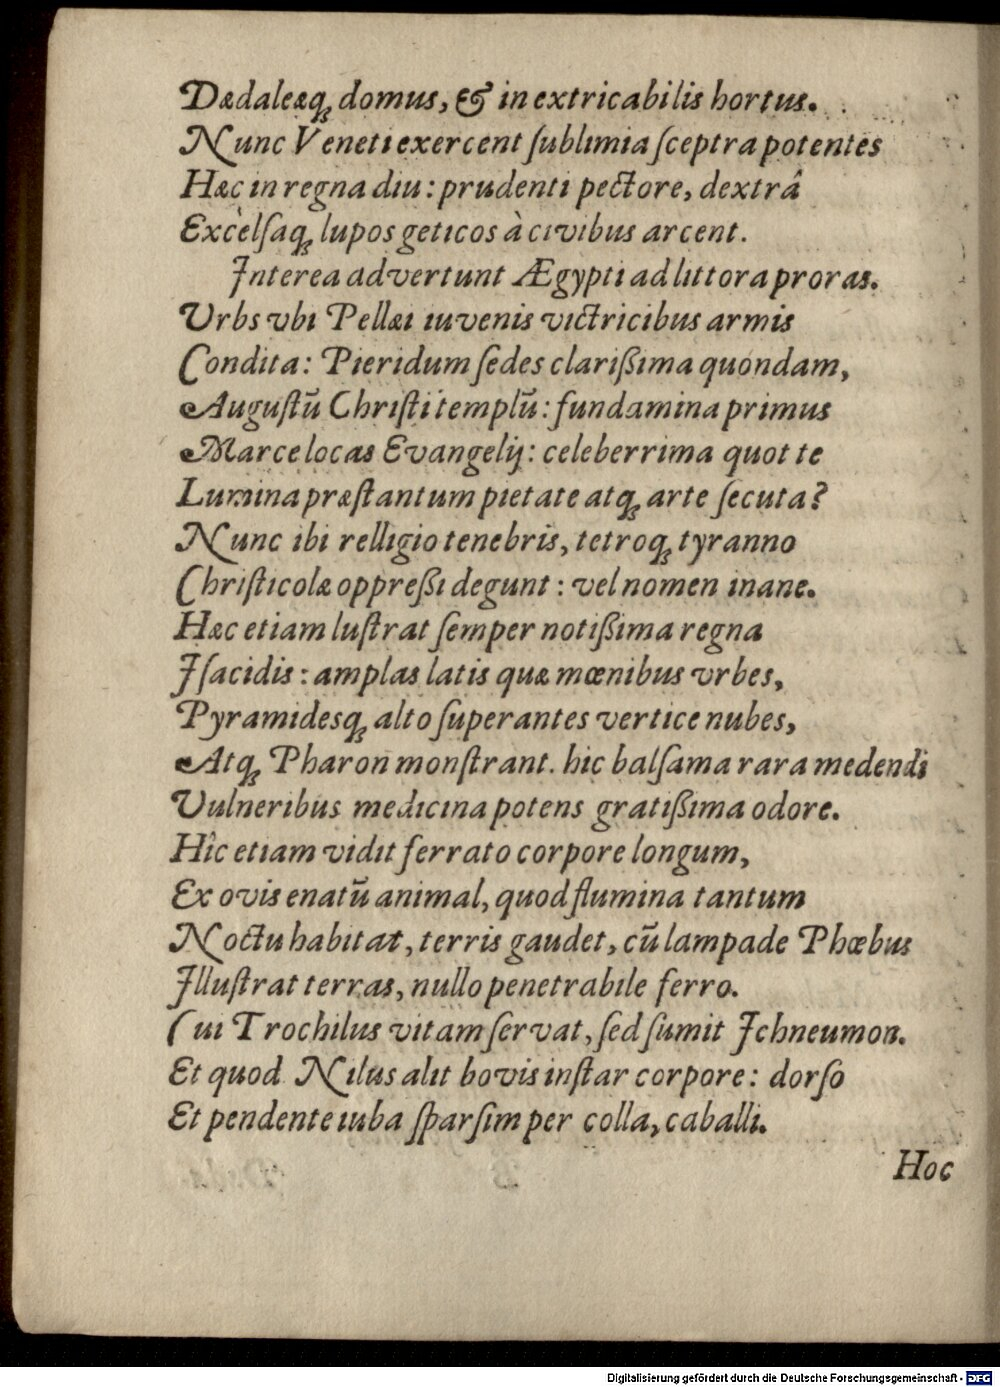 Dædaleæq́ꝫ domus, & inextricabilis hortus.
Nunc Veneti exercent ſublimia ſceptra potentes
Hæc in regna diu: prudenti pectore, dextrâ
Excèlſaqꝫ lupos geticos à civibus arcent.
Interea advertunt Ægypti ad littora proras.
Vrbs vbi Pellæi iuvenis victricibus armis
Condita: Pieridum ſedes clarißima quondam,
Auguſtū Chriſti templū: fundamina primus
Marce locas Evangelij: celeberrima quot te
Lumina præſtantum pietate atqꝫ arte ſecuta?
Nunc ibi relligio tenebris, tetroqꝫ tyranno
Chriſticolæ oppreßi degunt: vel nomen inane.
Hæc etiam luſtrat ſemper notißima regna
Iſacidis: amplas latis quæ mœnibus vrbes,
Pyramidesqꝫ alto ſuperantes vertice nubes,
Atqꝫ Pharon monſtrant. hic balſama rara medendi
Vulneribus medicina potens gratißima odore.
Hîc etiam vidit ferrato corpore longum,
Ex ovis enatū animal, quod flumina tantum
Noctu habitat, terris gaudet, cū lampade Phœbus
Illuſtrat terras, nullo penetrabile ferro.
Cui Trochilus vitam ſervat, ſed ſumit Ichneumon.
Et quod Nilus alit bovis inſtar corpore: dorſo
Et pendente iuba ſparſim per colla, caballi.
Hoc
Digitalisierung gefördert durch die Deutsche Forschungsgemeinschaft - DFG